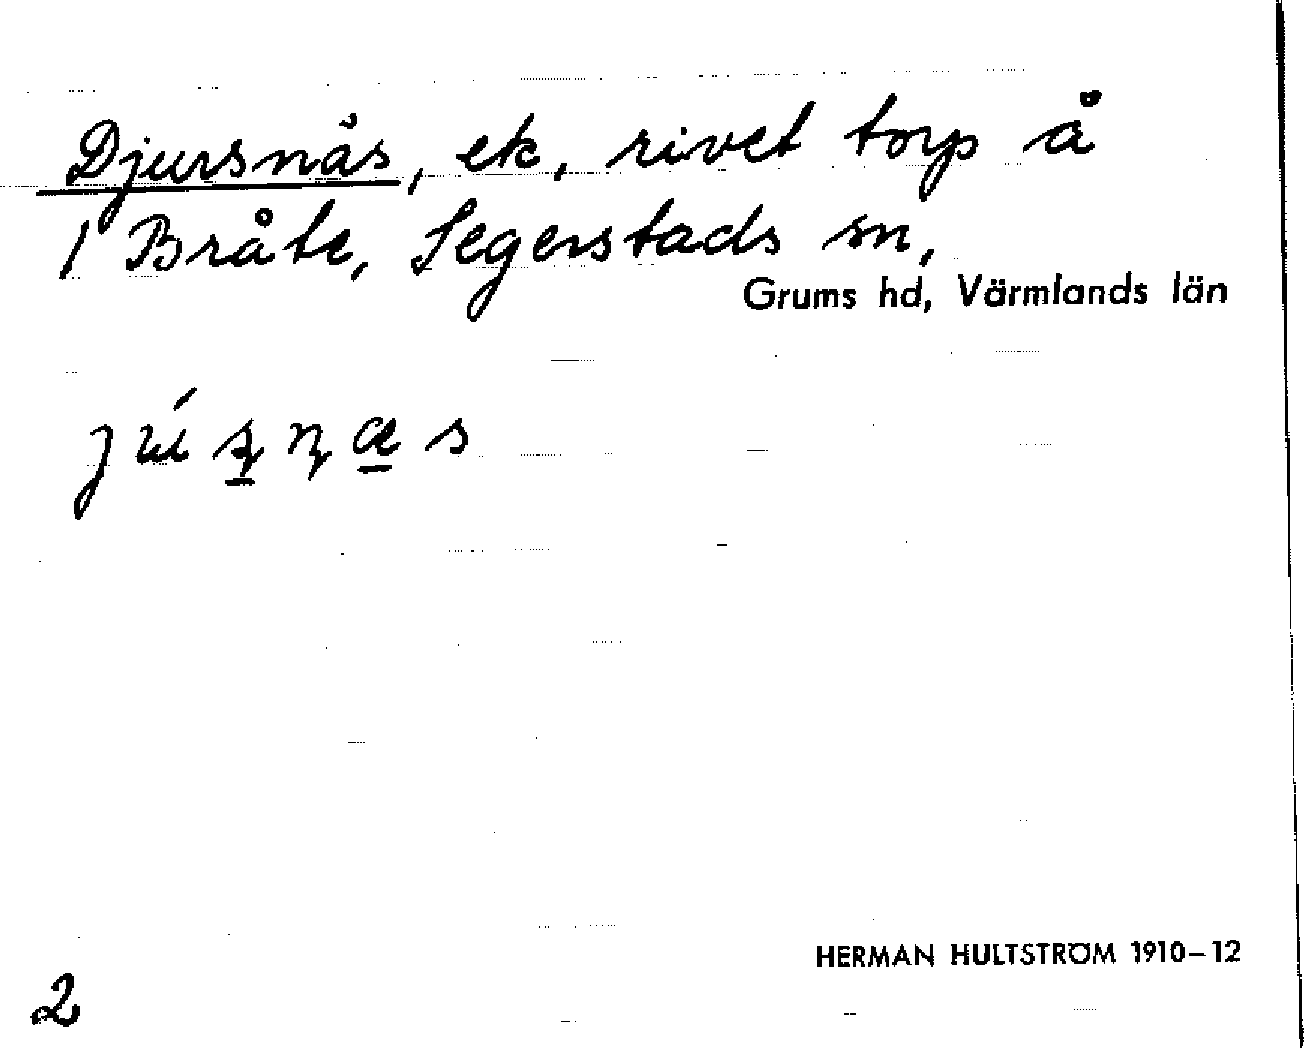 Djursnäs, ek, rivet torp å
1 Bråte, Segerstads sn,
Grums hd, Värmlands län
HERMAN HULTSTRÖM 1910–12
2